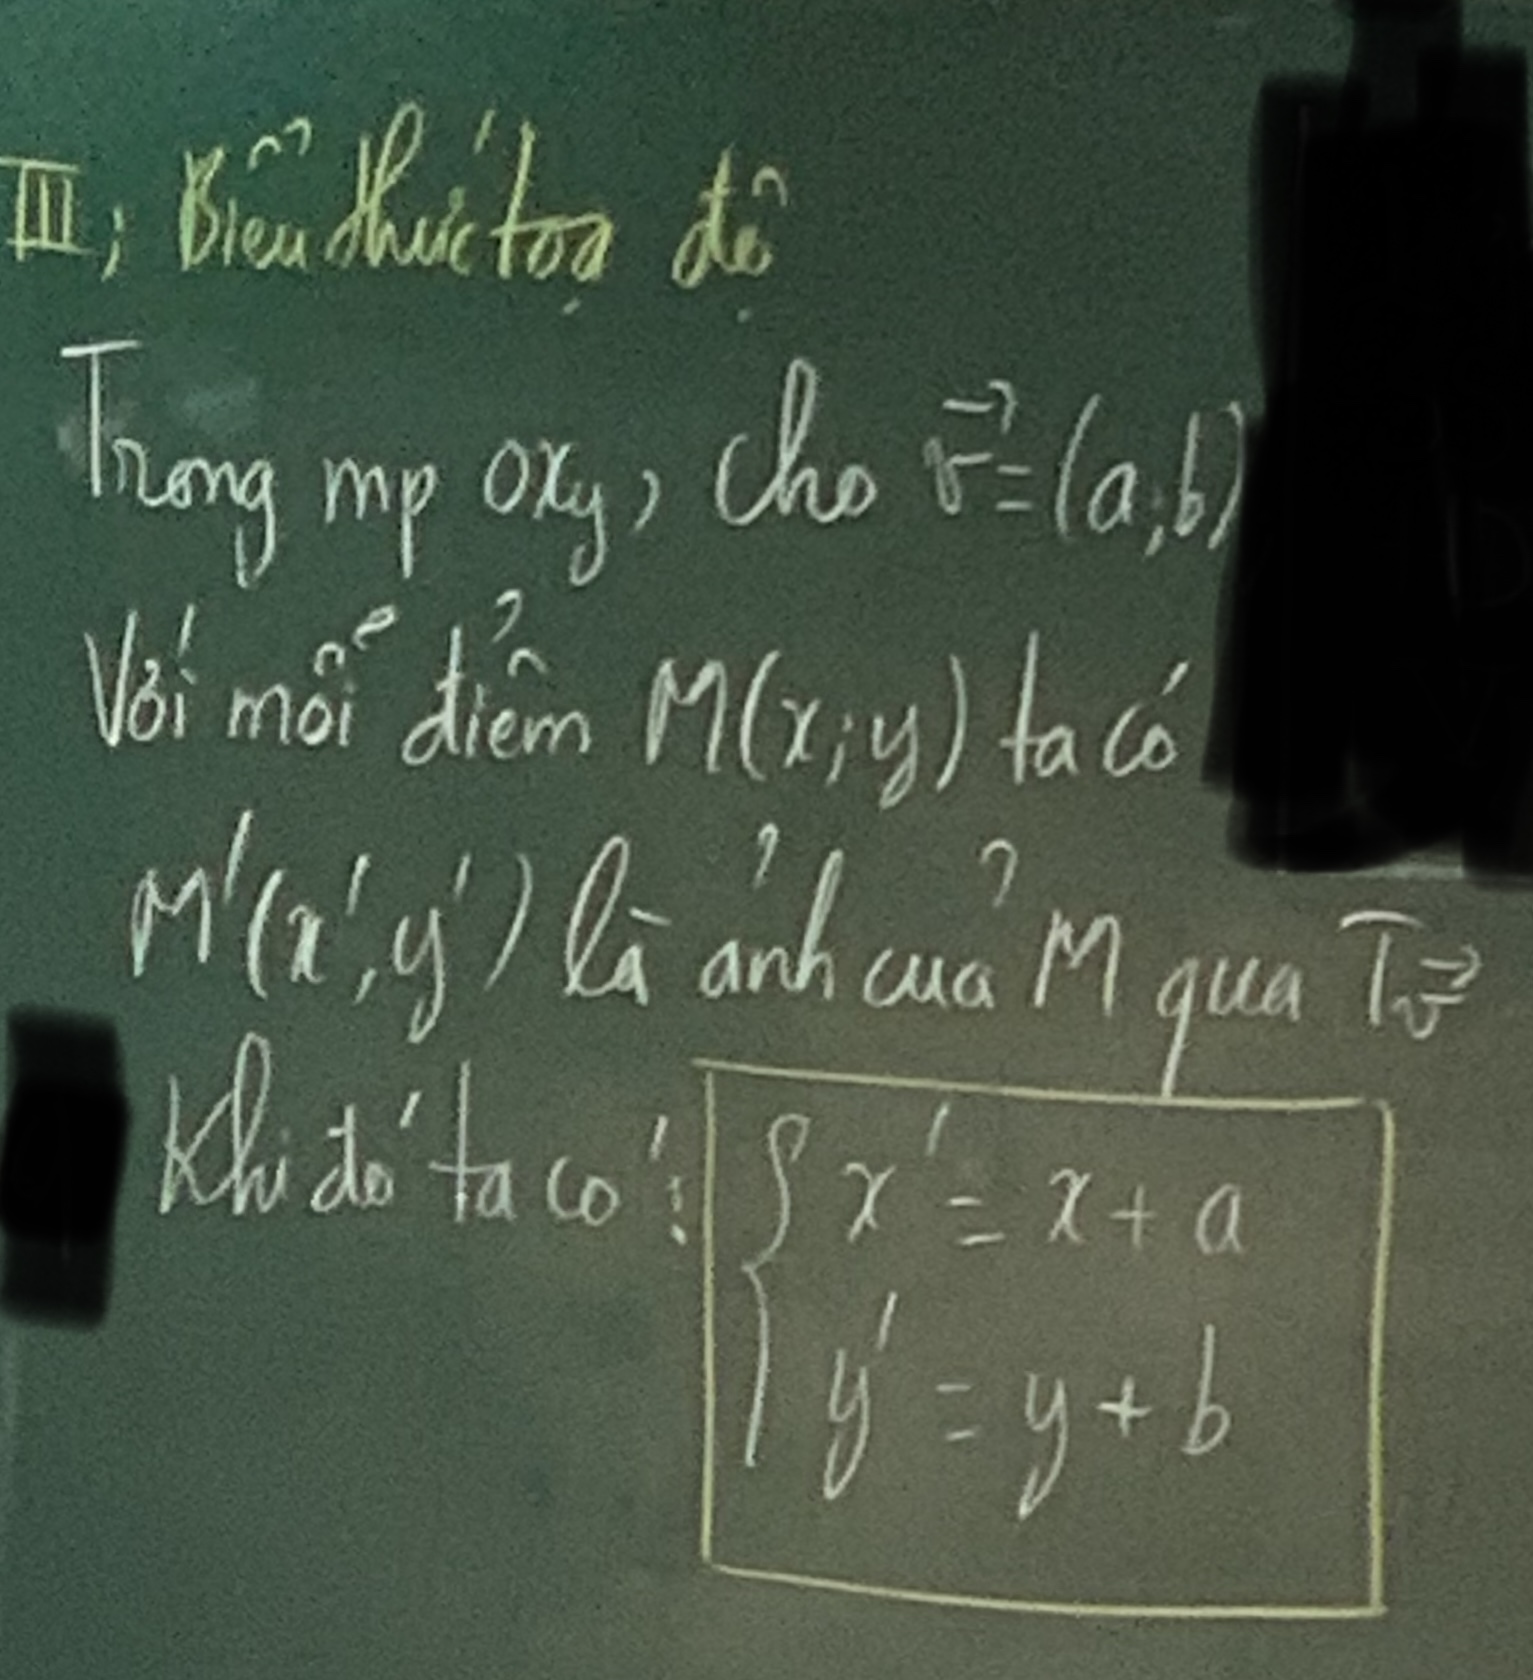 III; Biểu thức toạ độ
Trong mp oxy, cho v⃗ = (a;b)
Với mỗi điểm M(x;y) ta có
M'(x',y') là ảnh của M qua T_v⃗
Khi đó ta có: { x' = x + a
y' = y + b